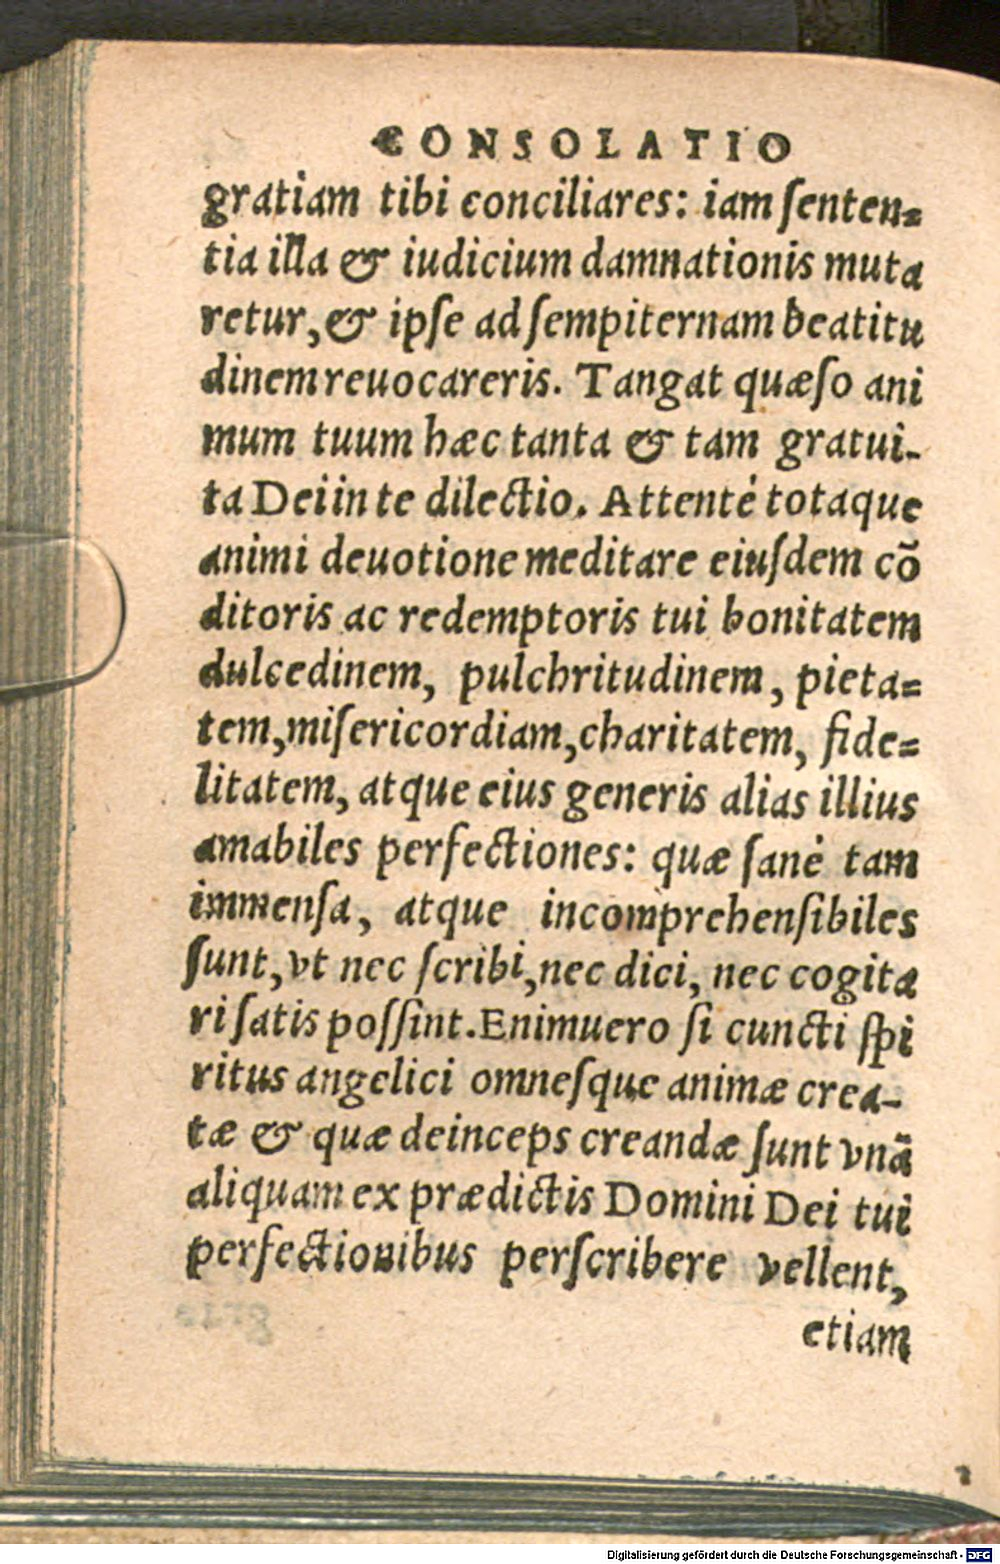 CONSOLATIO
gratiam tibi conciliares: iam ſenten=
tia illa & iudicium damnationis muta
retur, & ipſe ad ſempiternam beatitu
dinem reuocareris. Tangat quæſo ani
mum tuum hæc tanta & tam gratui-
ta Dei in te dilectio. Attentè totaque
animi deuotione meditare eiuſdem cõ
ditoris ac redemptoris tui bonitatem
dulcedinem, pulchritudinem, pieta=
tem, miſericordiam, charitatem, fide=
litatem, atque eius generis alias illius
amabiles perfectiones: quæ ſanè tam
immenſa, atque incomprehenſibiles
ſunt, vt nec ſcribi, nec dici, nec cogita
ri ſatis poſſint. Enimuero ſi cuncti ſpi
ritus angelici omneſque animæ crea-
tæ & quæ deinceps creandæ ſunt vnã
aliquam ex prædictis Domini Dei tui
perfectionibus perſcribere vellent,
etiam
Digitalisierung gefördert durch die Deutsche Forschungsgemeinschaft - DFG